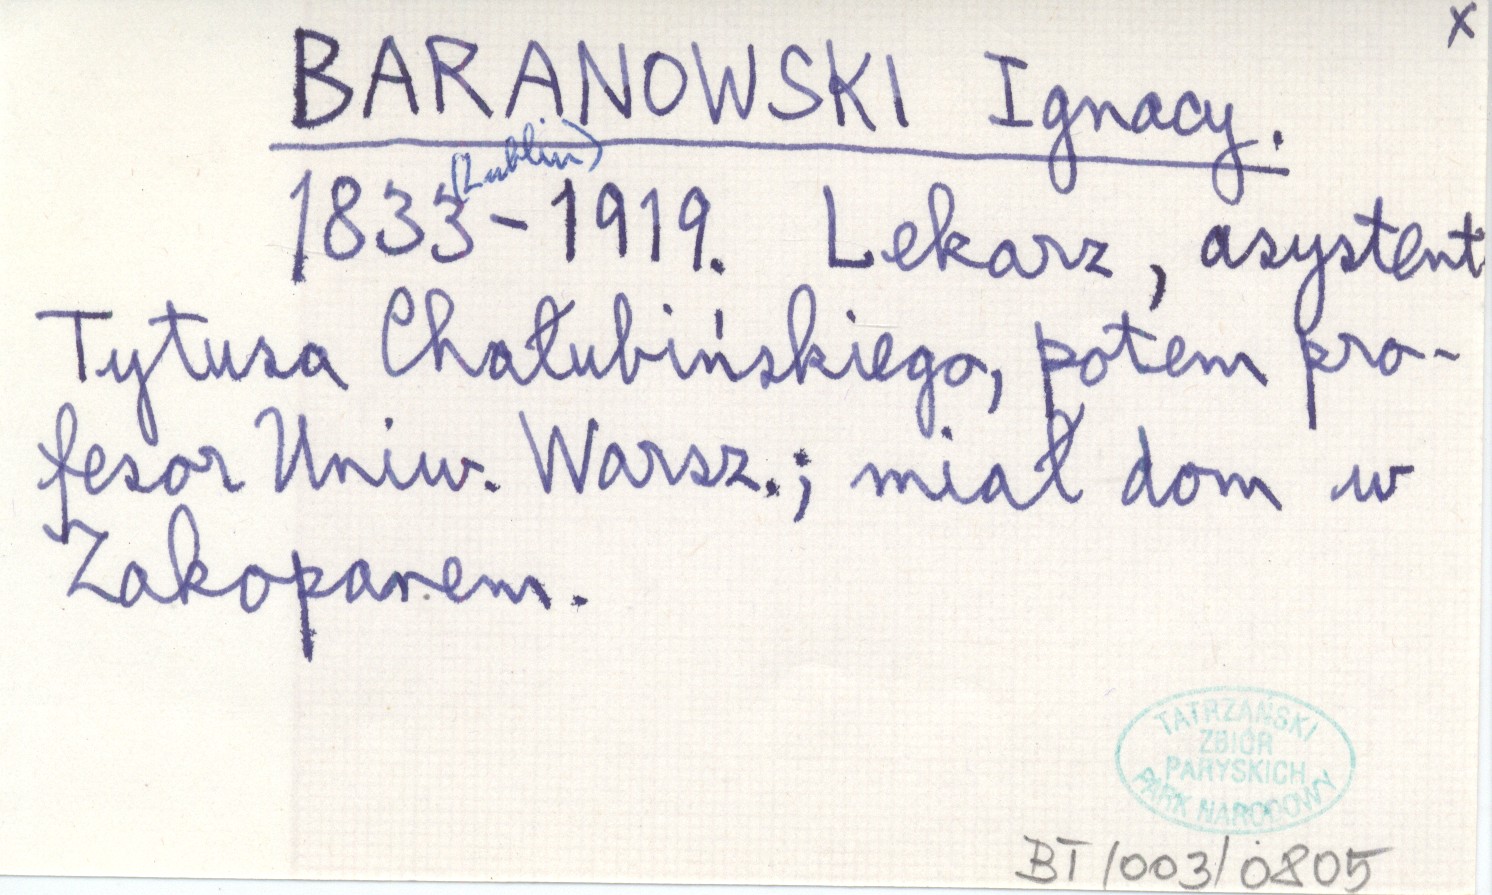 x
BARANOWSKI Ignacy.
(Lublin)
1833-1919. Lekarz, asystent
Tytusa Chałubińskiego, potem pro-
fesor Uniw. Warsz.; miał dom w
Zakopanem.
TATRZAŃSKI
ZBIÓR
PARYSKICH
PARK NARODOWY
BT/003/0805